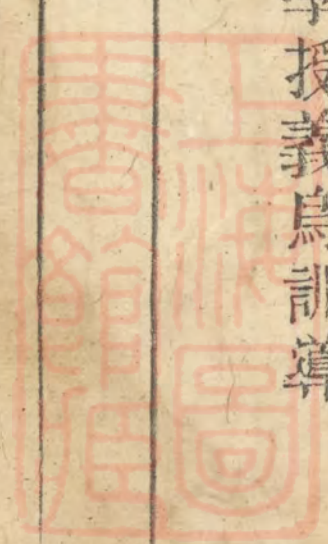 授義烏訓導
上海圖
書館藏